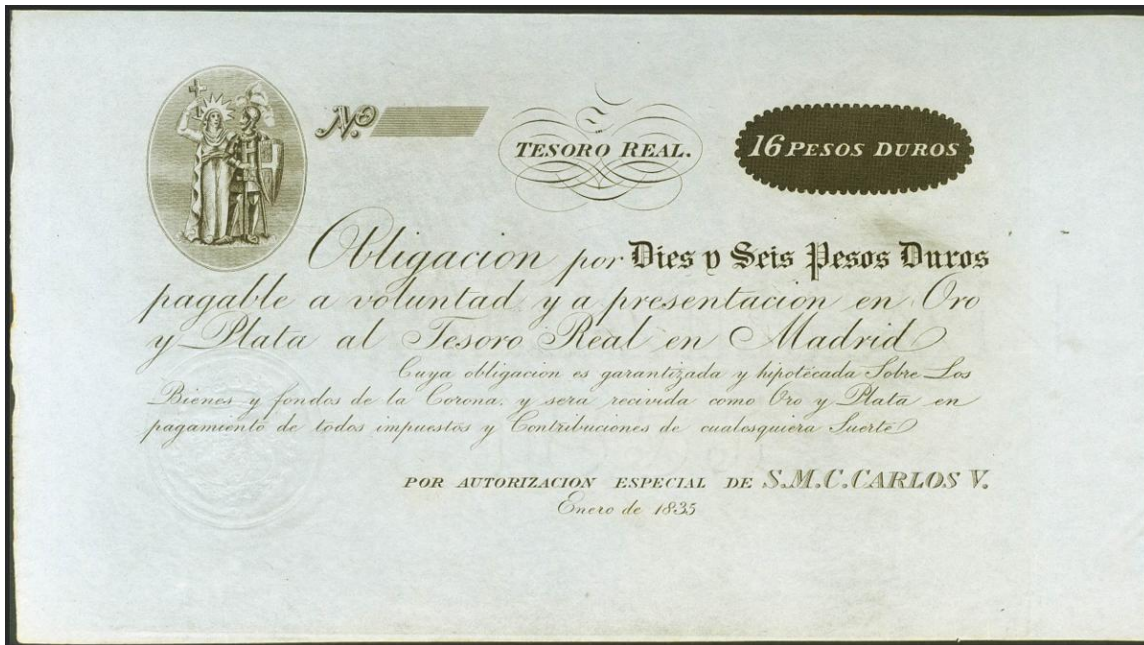 No
TESORO REAL.
16 PESOS DUROS
Obligacion por Dies y Seis Pesos Duros
pagable a voluntad y a presentacion en Oro
y Plata al Tesoro Real en Madrid
Cuya obligacion es garantizada y hipotécada Sobre Los
Bienes y fondos de la Corona, y sera recivida como Oro y Plata en
pagamiento de todos impuestos y Contribuciones de cualesquiera Suerte
POR AUTORIZACION ESPECIAL DE S.M.C. CARLOS V.
Enero de 1835